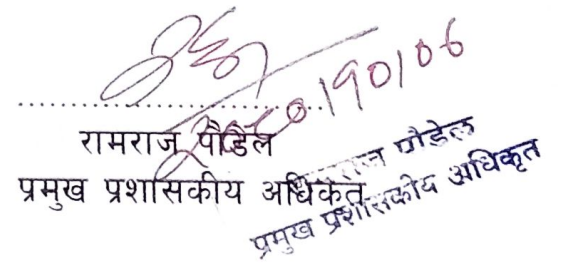 रामराज पौडेल
प्रमुख प्रशासकीय अधिकृत
राज पौडेल
प्रमुख प्रशासकीय अधिकृत